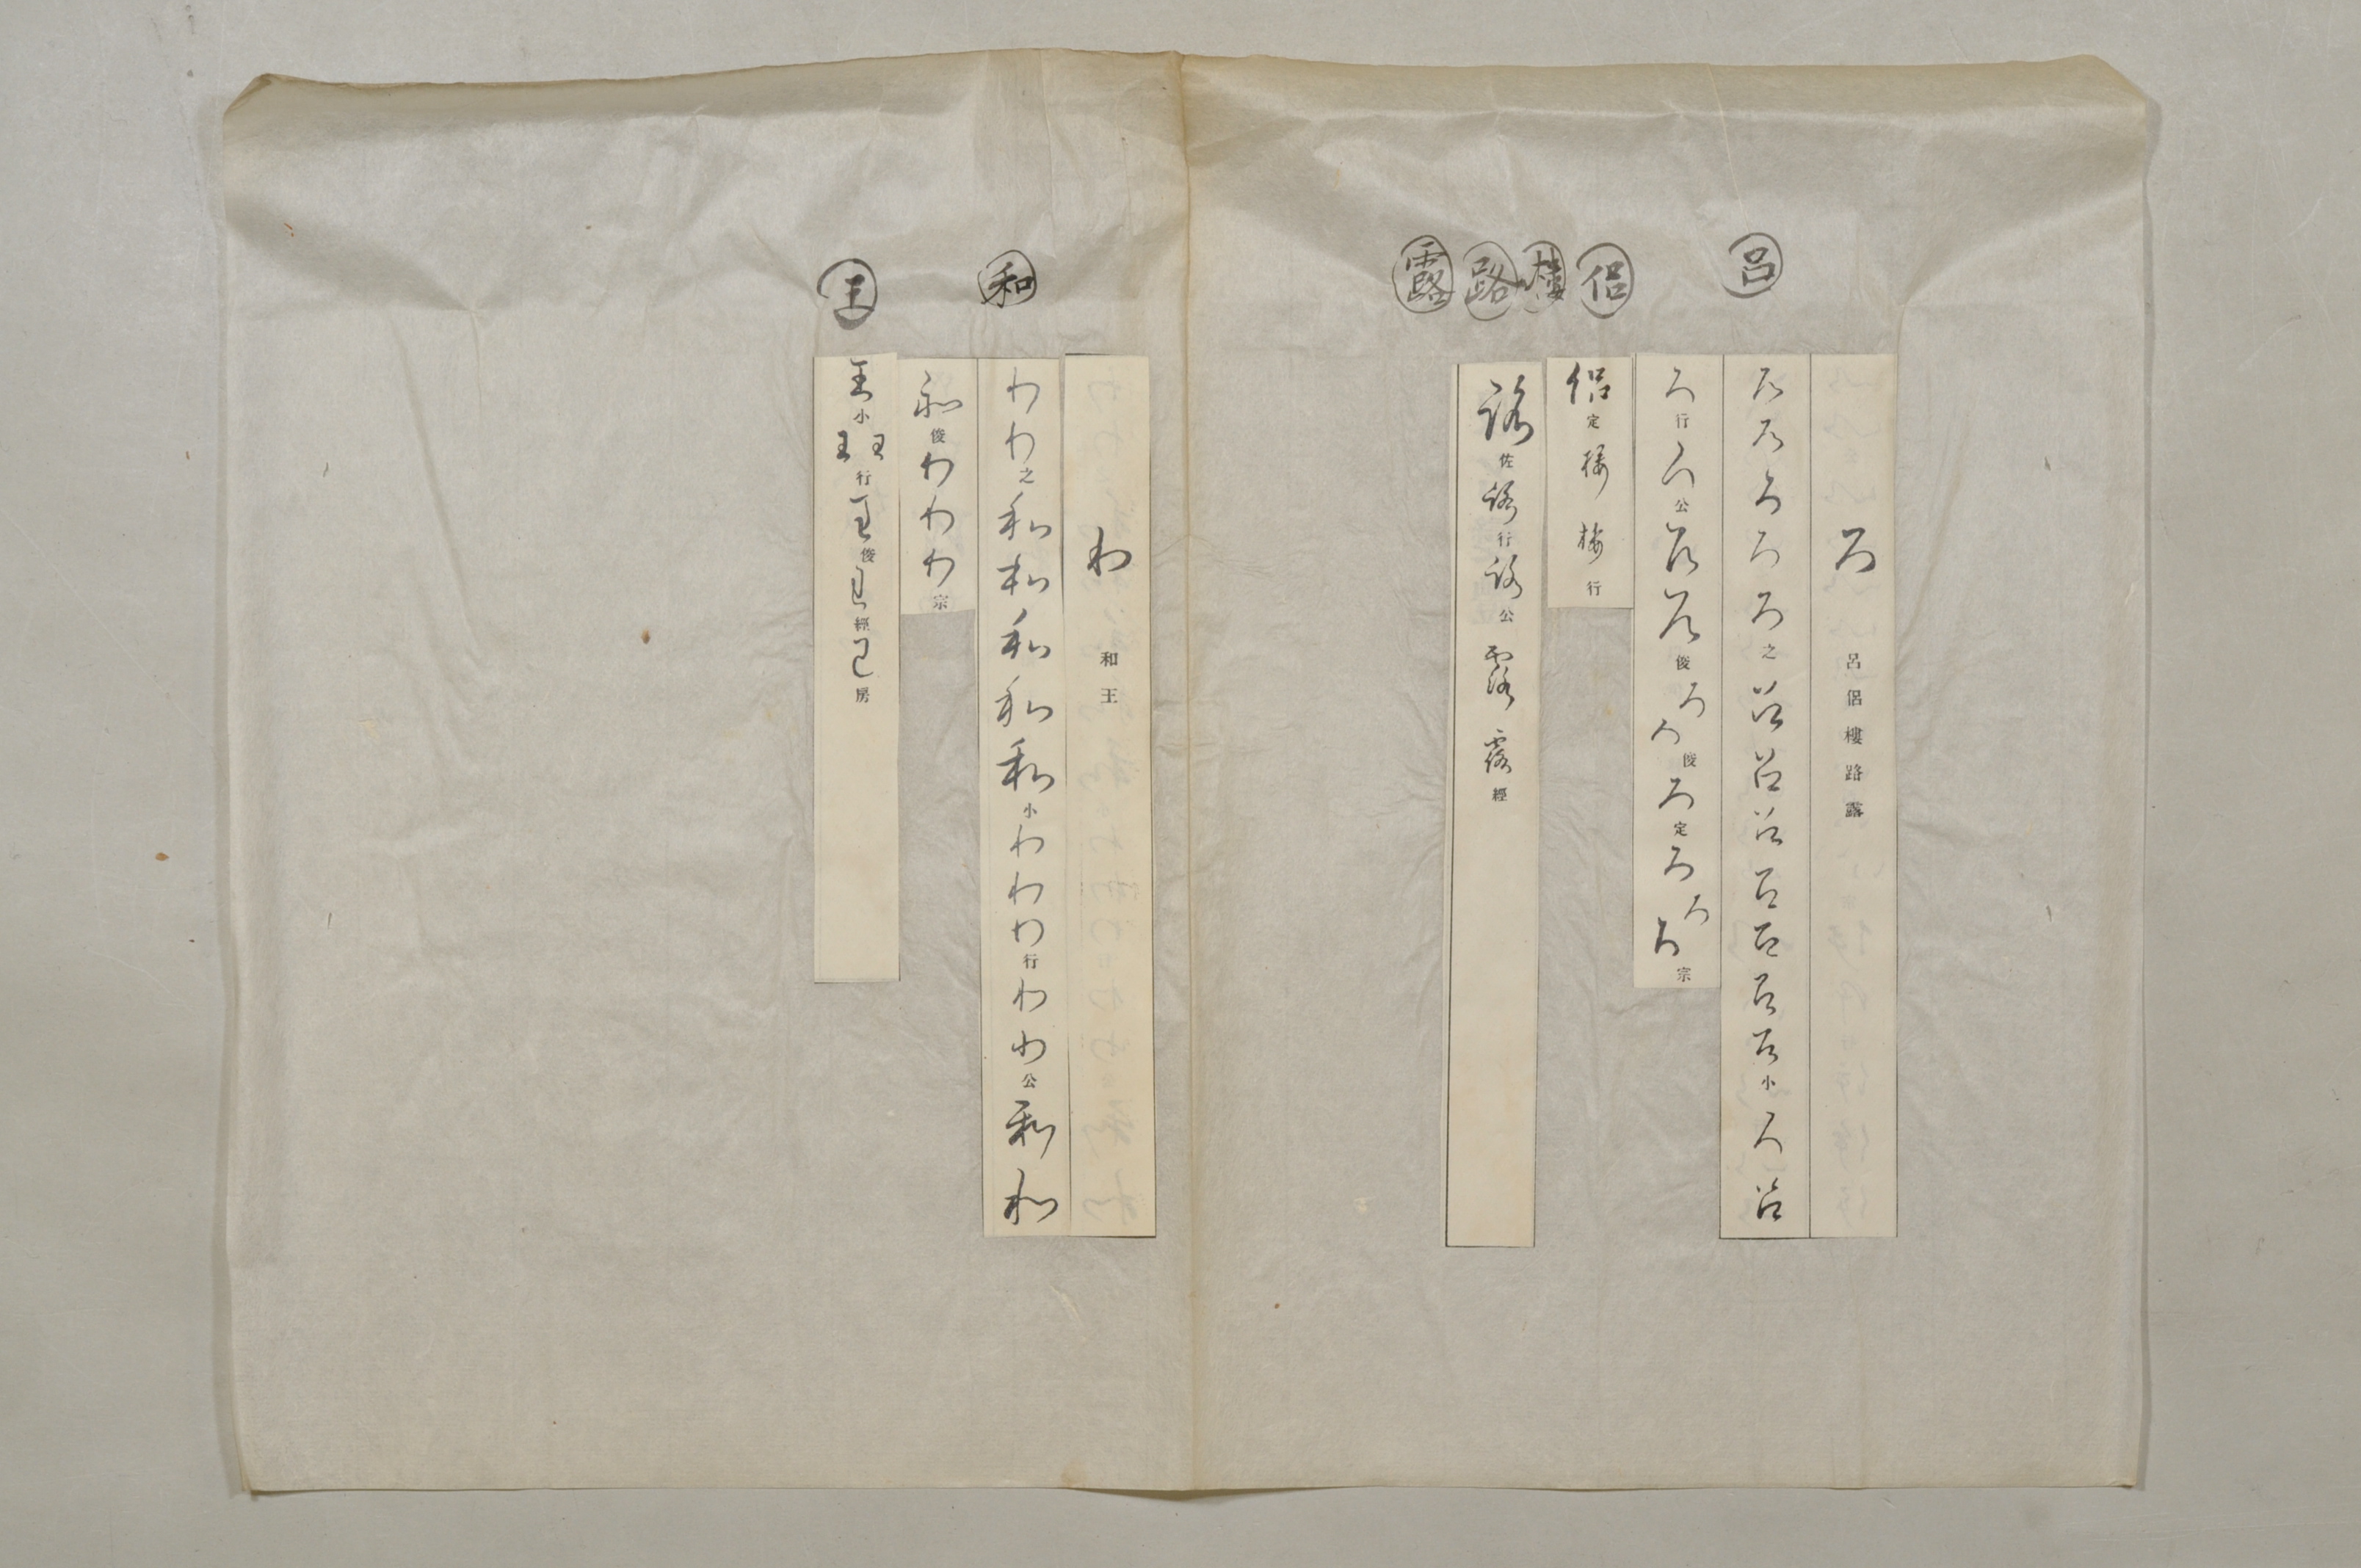 呂
侶
樓
路
露
ろ 呂侶樓路露
ろろろろろ之呂呂呂呂呂呂呂小ろ呂
ろ行ろ公呂呂俊ろろ俊ろ定ろろろ宗
侶定樓樓行
路佐路行路公露露經
和
王
わ 和王
わわ之和和和和和小わわわ行わわ公和和
和俊わわわ宗
王小王王行王俊王經王房